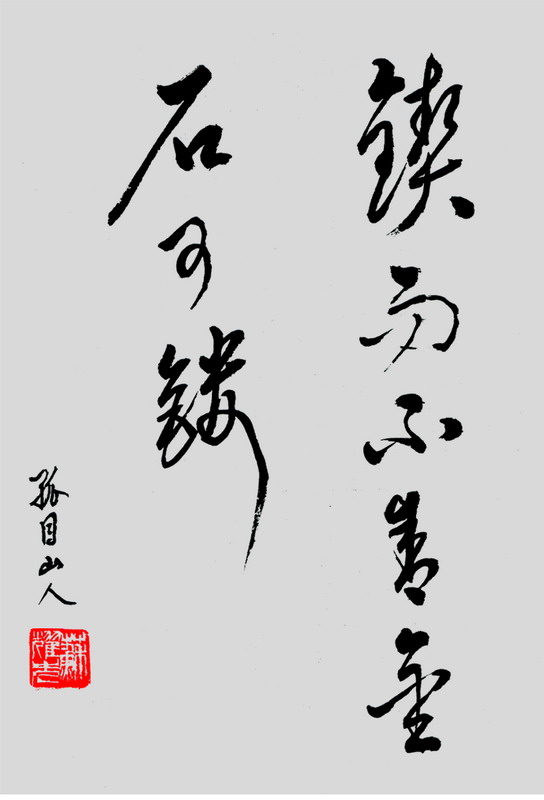 鍥而不舍金
石可鏤
孤目山人